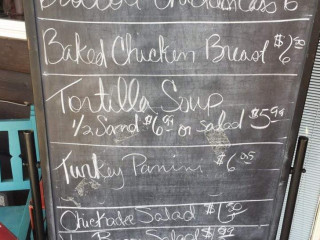 Baked Chicken Breast $6.50
Tortilla Soup
1/2 Sand $6.99 or Salad $5.99
Turkey Panini $6
Chickadee Salad
Salad $1.99